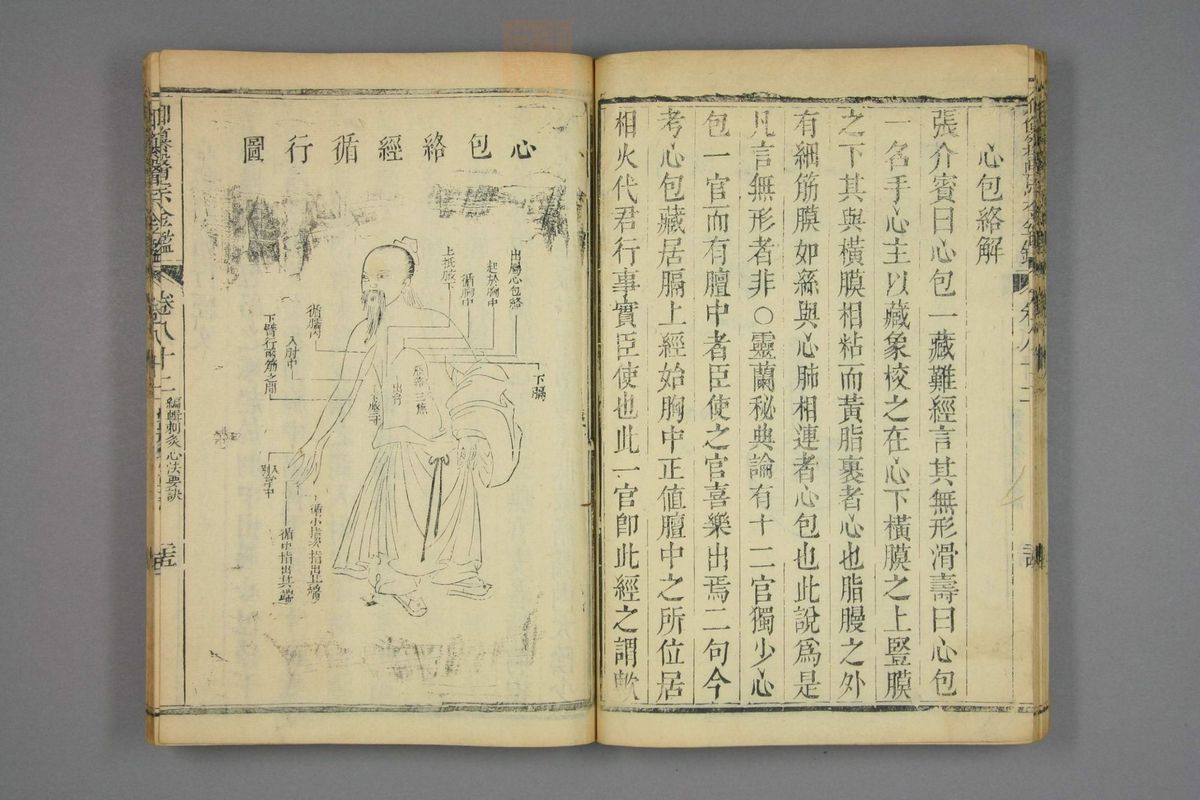 心包絡解
張介賓曰心包一藏難經言其無形滑壽曰心包
一名手心主以藏象校之在心下橫膜之上竪膜
之下其與橫膜相粘而黃脂裹者心也脂膜之外
有細筋膜如絲與心肺相連者心包也此說爲是
凡言無形者非○靈蘭秘典論有十二官獨少心
包一官而有膻中者臣使之官喜樂出焉二句今
考心包藏居膈上經始胸中正値膻中之所位居
相火代君行事實臣使也此一官卽此經之謂歟
心包絡經循行圖
出屬心包絡
起於胸中
循胸中
上抵腋下
循臑內
入肘中
下臂行兩筋之間
下膈
歷絡三焦
出脅
下腋三寸
入掌中
別
循小指次指出其端
循中指出其端
御纂醫宗金鑑
卷八十二
編輯刺灸心法要訣